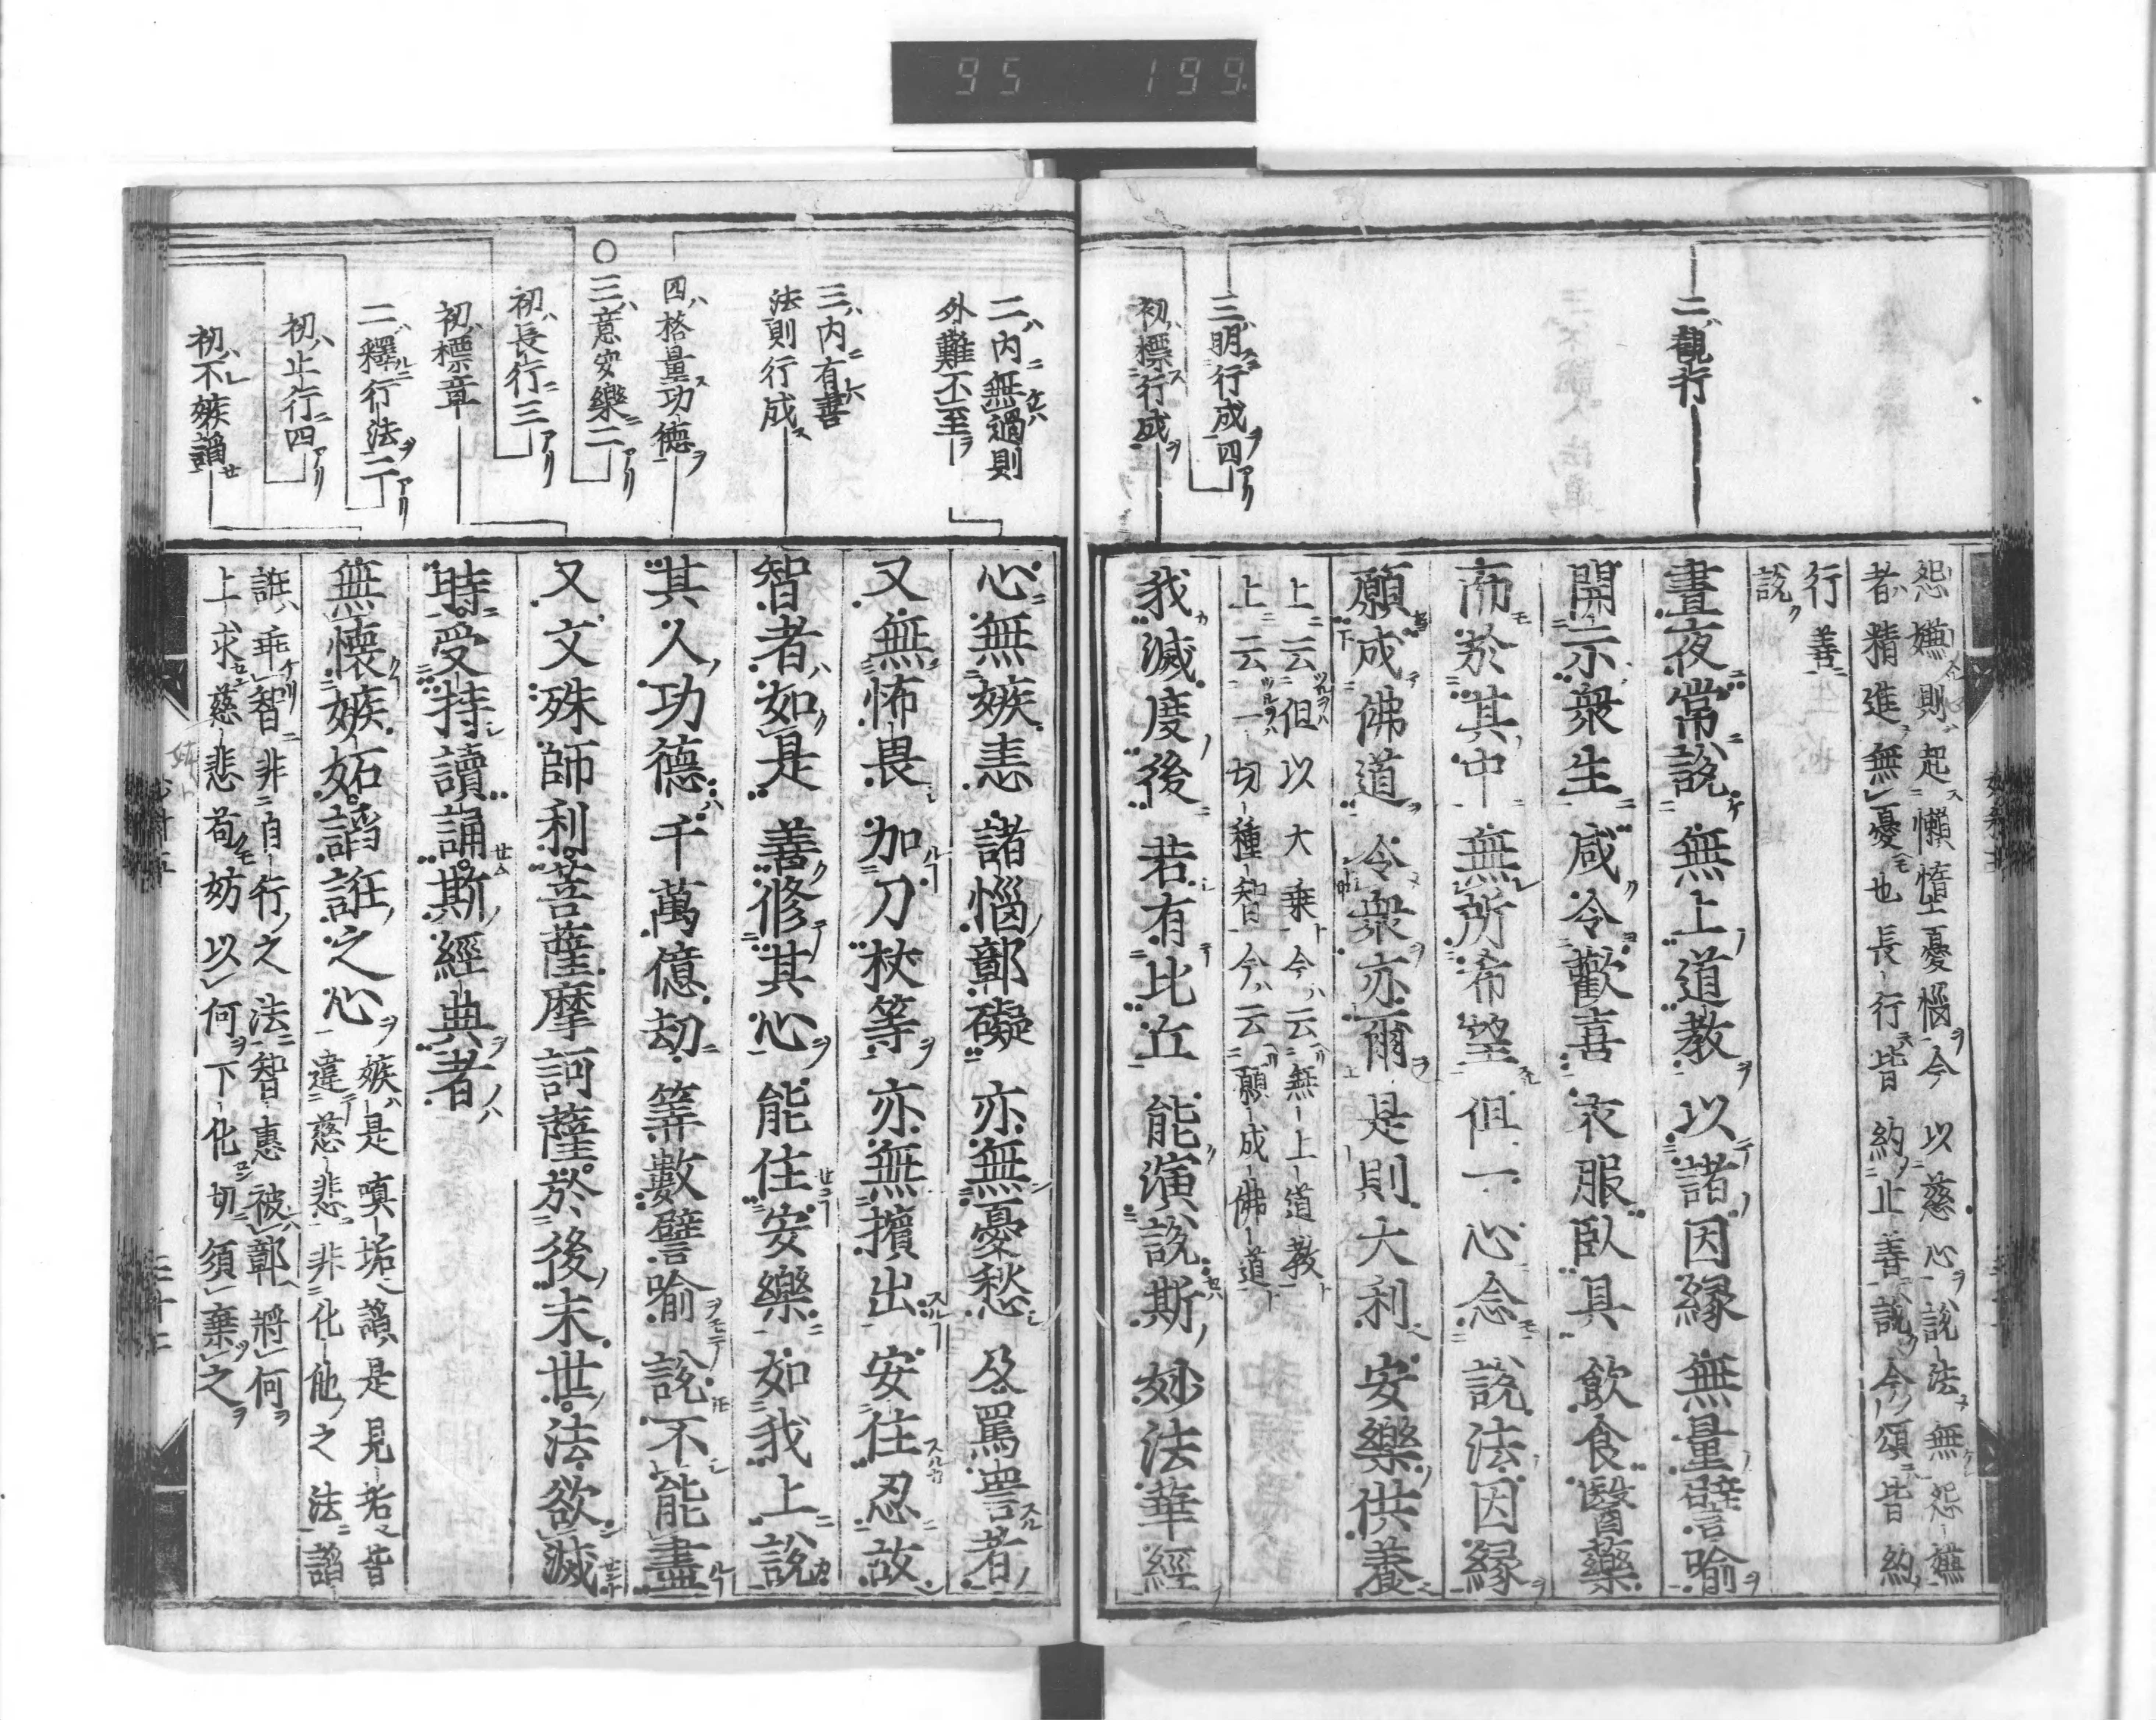 95 199
二觀行
三明行成四
初標行成
怨嫌則起懶惰憂惱今以慈心說法無怨嫌
者精進無憂也長行皆約止善說今頌皆約
行善
說
晝夜常說無上道教以諸因緣無量譬喻
開示衆生咸令歡喜衣服臥具飲食醫藥
而於其中無所希望但一心念說法因緣
願成佛道令衆亦爾是則大利安樂供養
上云但以大乘今云無上道教
上云一切種智今云願成佛道
我滅度後若有比丘能演說斯妙法華經
二內無過則
外難不至
三內有善
法則行成
四格量功德
○三意安樂二
初長行三
初標章
二釋行法二
初止行四
初不嫉諂
心無嫉恚諸惱鄣礙亦無憂愁及罵詈者
又無怖畏加刀杖等亦無擯出安住忍故
智者如是善修其心能住安樂如我上說
其人功德千萬億劫筭數譬喻說不能盡
又文殊師利菩薩摩訶薩於後末世法欲滅
時受持讀誦斯經典者
無懷嫉妬諂誑之心
嫉是嗔垢諂是見垢皆
違慈悲非化他之法諂
誑乖智非自行之法智惠被鄣將何
上求慈悲苟妨以何下化切須棄之